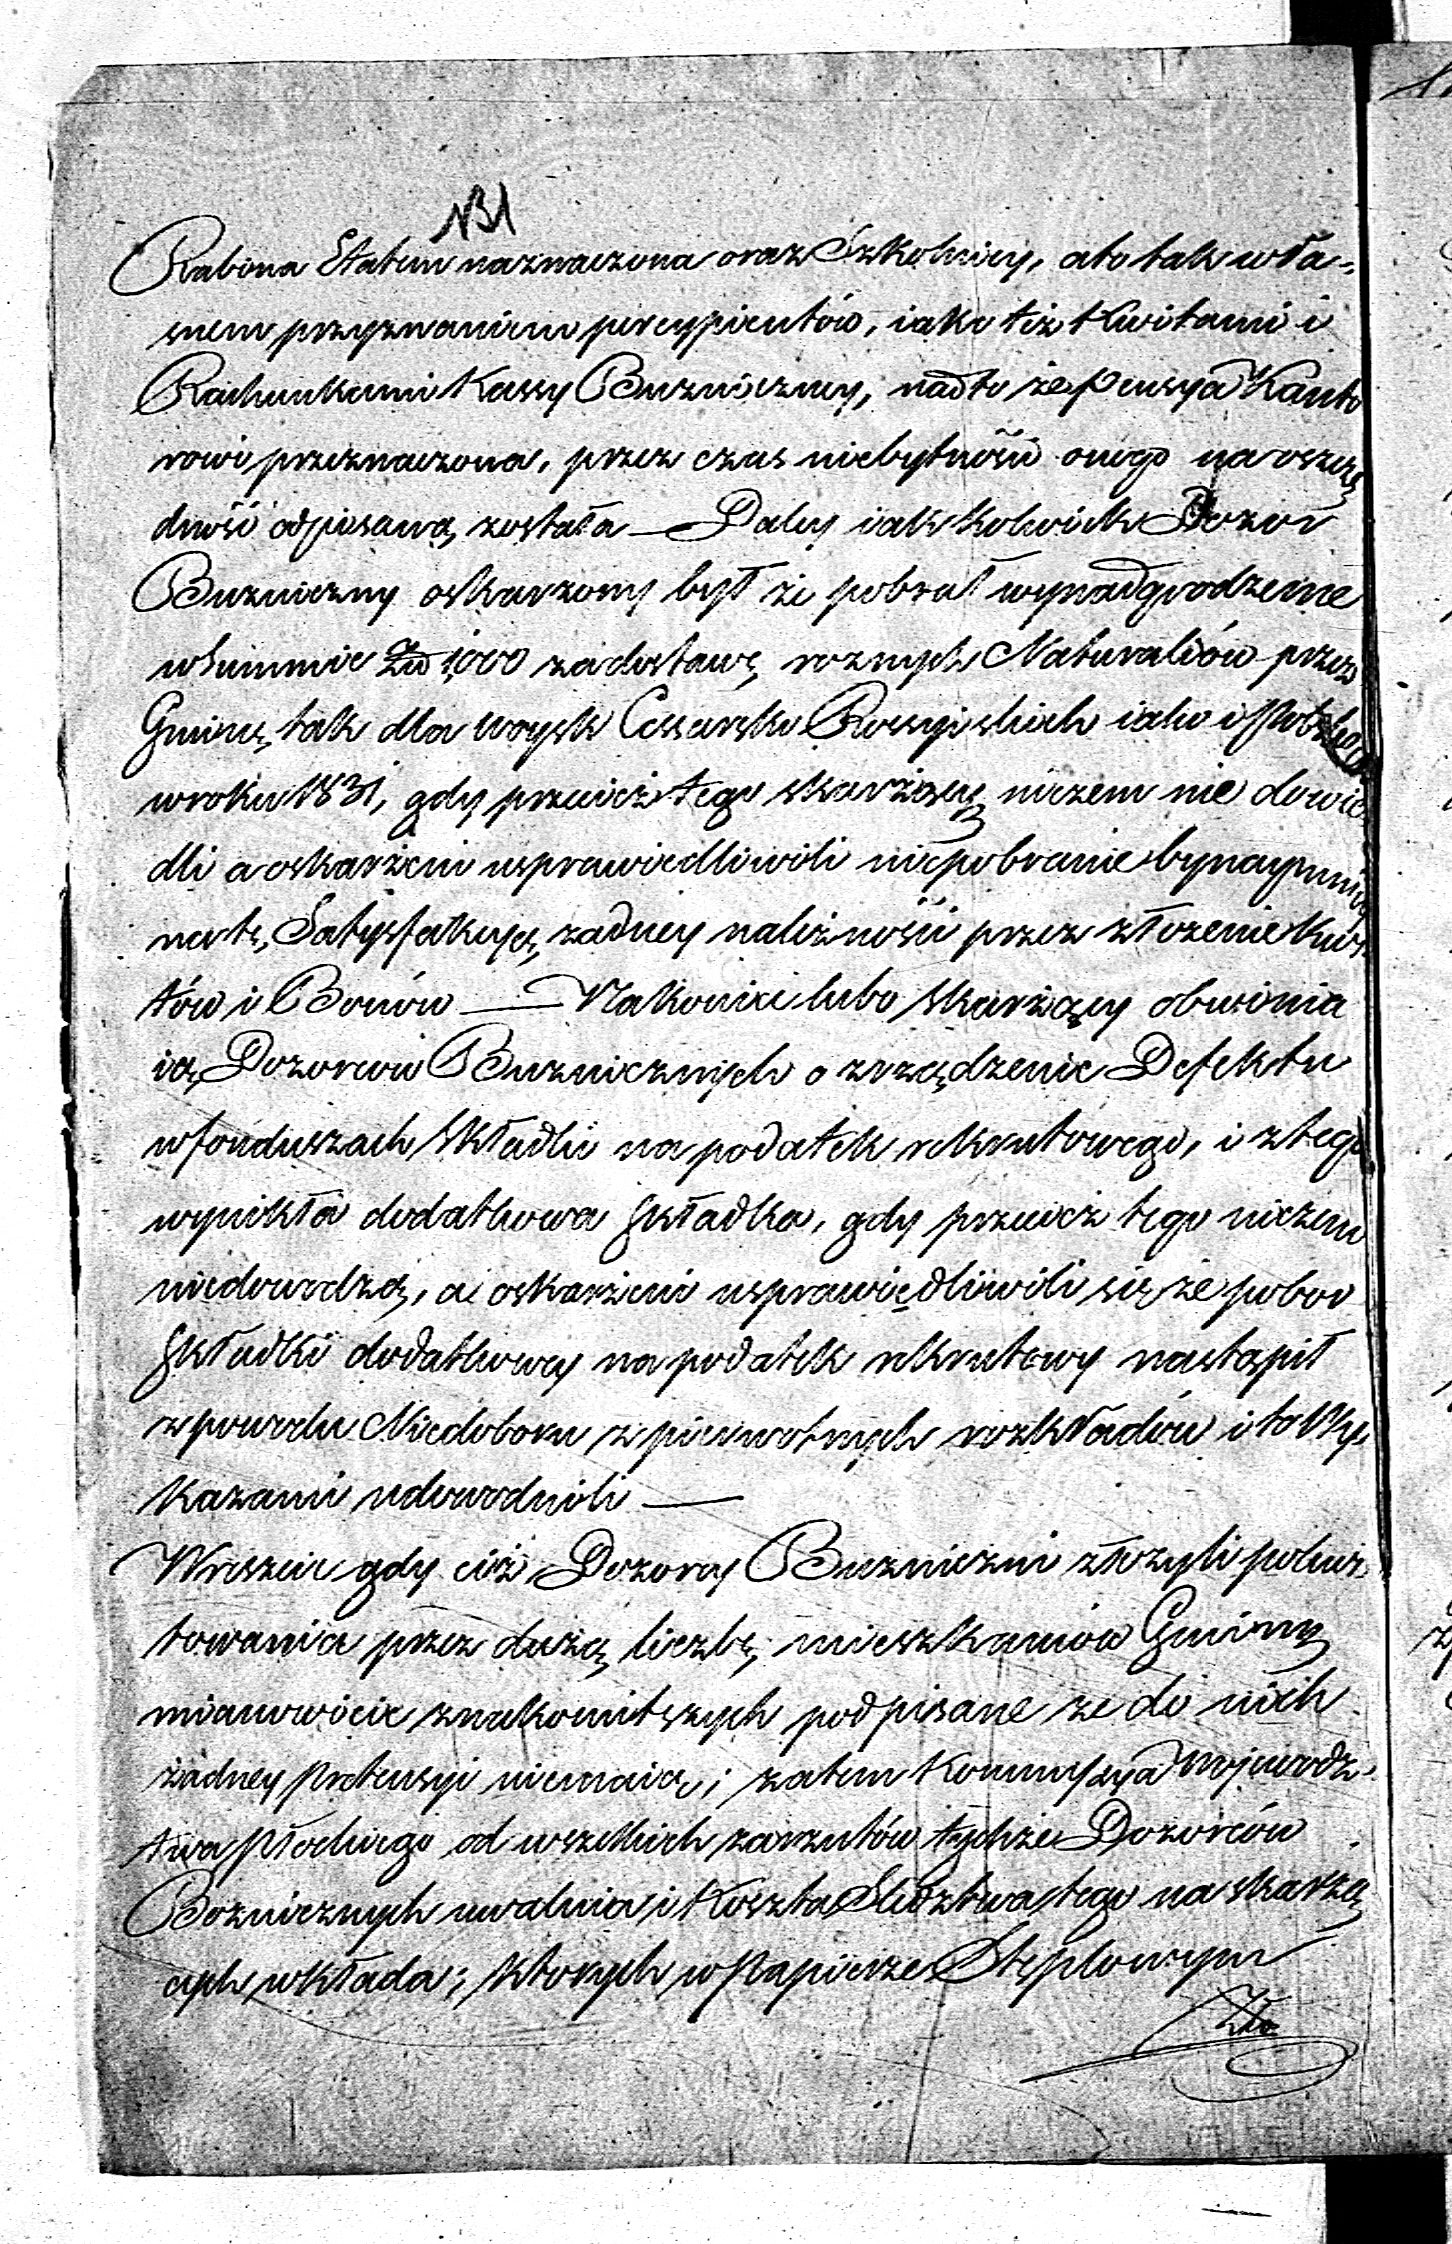 NB1
Rabina Etatem naznaczona oraz Szkolnicy, a to tak wła-
snem przyznaniem percypientów, iako też Kwitami i
Rachunkami Kassy Buznicznej, nadto że pensya Kanto
rowi przeznaczona, przez czas niebytności onego na oszczę
dność odpisaną została — Daley iakkolwiek Dozor
Buzniczny oskarzony był że pobrał wynadgrodzenie
w summie Złp 1000 za dostawę roznych Naturaliów przez
Gminę tak dla woysk Cesarsko Rossyiskich iako i Polskich
w roku 1831, gdy przecież tego skarżący niczem nie dowie
dli a oskarżeni usprawiedliwili niepobranie bynaymniey
na tę Satysfakcyą żadney należności przez złożenie Kwi
tów i Bonów — Nakoniec lubo skarżący obwinia
ią Dozorców Buznicznych o zrządzenie Defektu
w funduszach składki na podatek rekrutowego, i z tego
wynikła dodatkowa składka, gdy przecież tego niczem
niedowodzą, a oskarżeni usprawiedliwili się że pobor
składki dodatkowey na podatek rekrutowy nastąpił
z powodu Niedoboru z pierwotnych rozkładów i to Wy-
kazami udowodnili —
Wreszcie gdy ciż Dozorcy Buzniczni złożyli pokwi
towania przez dużą liczbę mieszkańców Gminy
mianowicie znakomitszych podpisane że do nich
żadney pretensyi niemaią; zatem Kommyssya Wojewodz-
twa Płockiego od wszelkich zarzutów tychże Dozorców
Bozniczných uwalnia i Koszta Śledztwa tego na skarżą
cych wkłada; których w Papierze Stęplowym
Złp